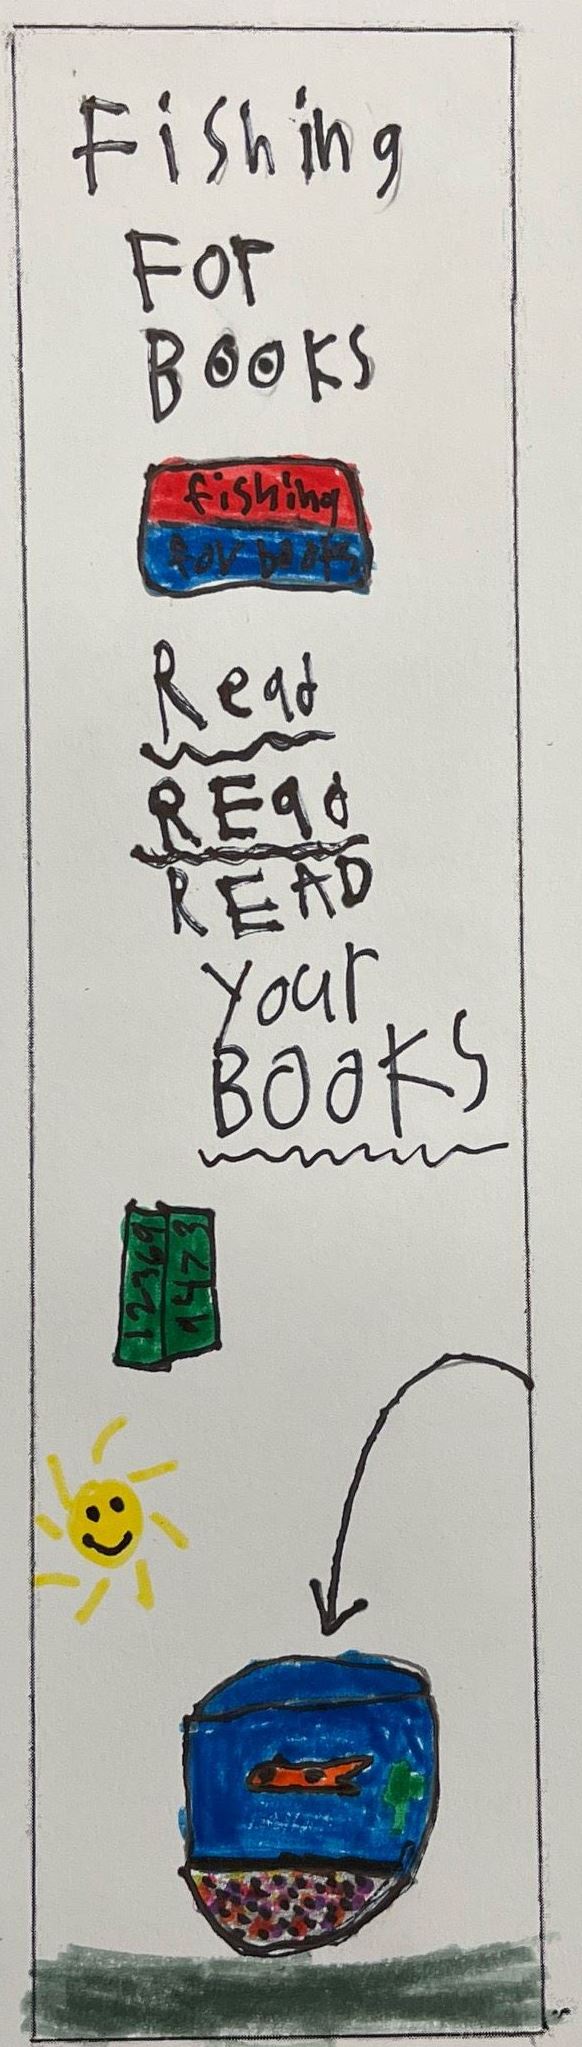 Fishing
For
BOOKS
fishing
for books
Read
REad
READ
your
BOOKS
12369
9473